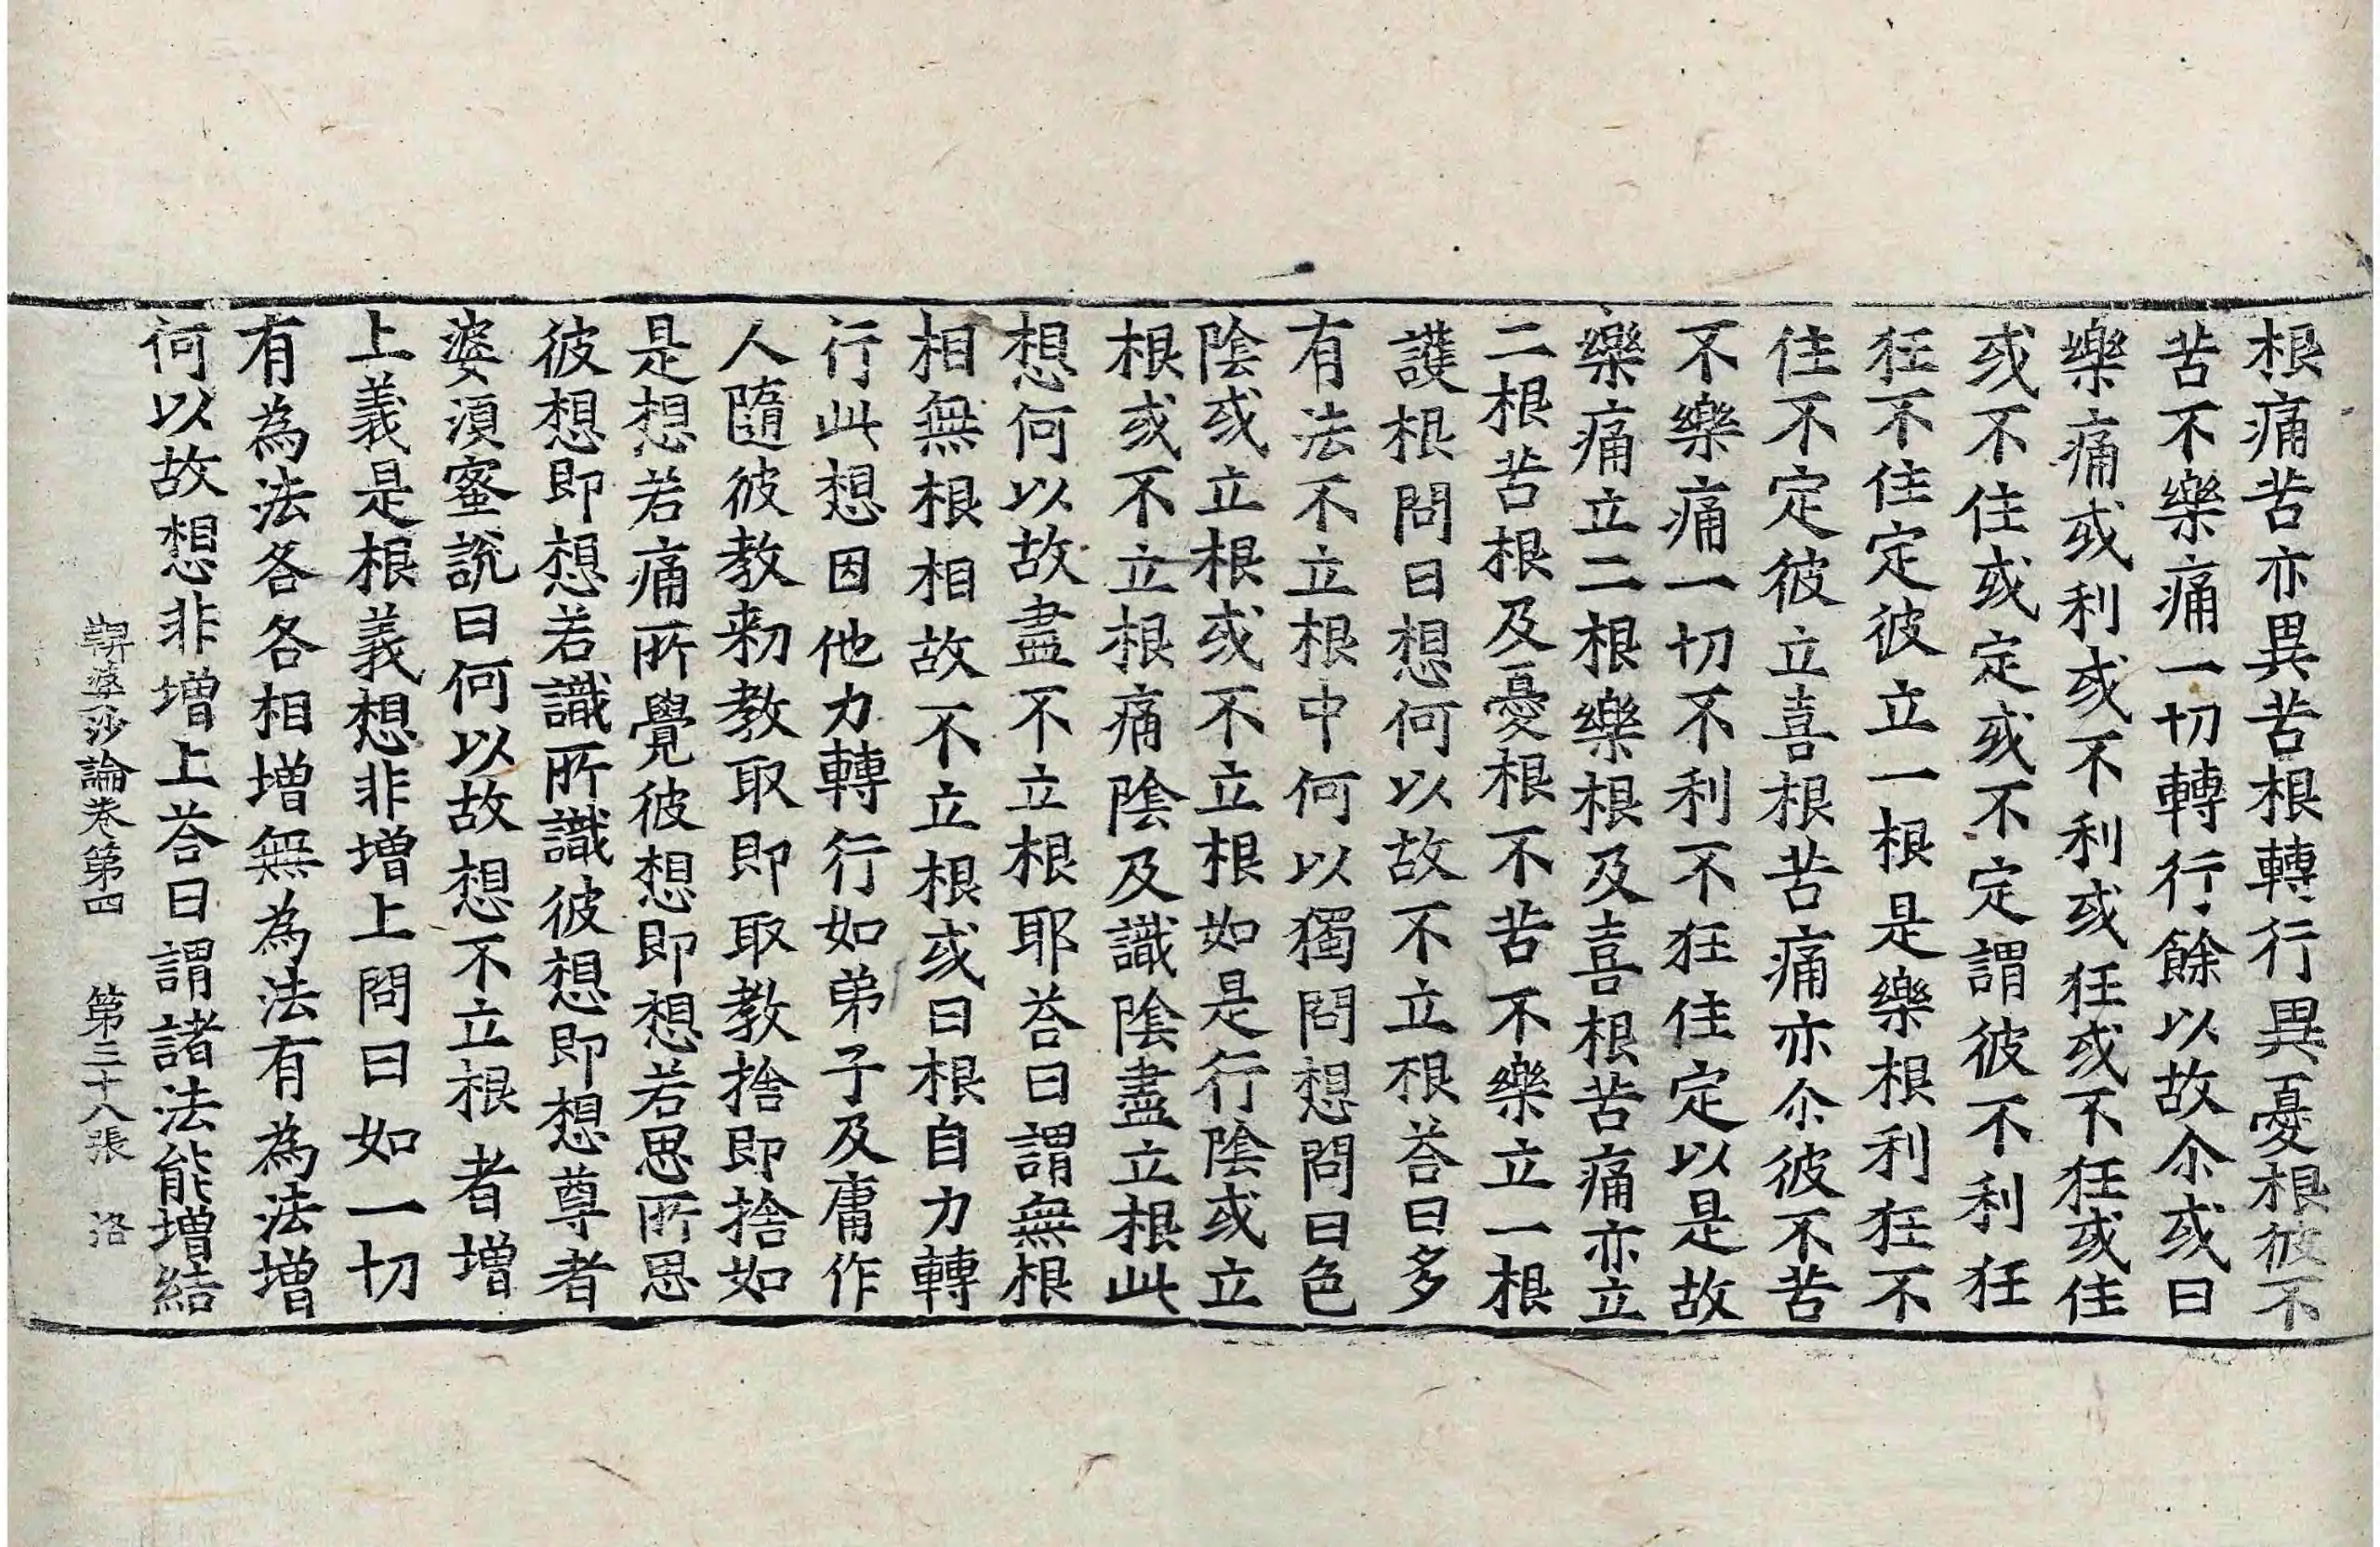 根痛苦亦異苦根轉行異憂根彼不
苦不樂痛一切轉行餘以故尒或曰
樂痛或利或不利或狂或不狂或住
或不住或定或不定謂彼不利狂
狂不住定彼立一根是樂根利狂不
住不定彼立喜根苦痛亦尒彼不苦
不樂痛一切不利不狂住定以是故
樂痛立二根樂根及喜根苦痛亦立
二根苦根及憂根不苦不樂立一根
護根問曰想何以故不立根荅曰多
有法不立根中何以獨問想問曰色
陰或立根或不立根如是行陰或立
根或不立根痛陰及識陰盡立根此
想何以故盡不立根耶荅曰謂無根
相無根相故不立根或曰根自力轉
行此想因他力轉行如弟子及庸作
人隨彼教勑教取即取教捨即捨如
是想若痛所覺彼想即想若思所思
彼想即想若識所識彼想即想尊者
婆須蜜說曰何以故想不立根者增
上義是根義想非增上問曰如一切
有為法各各相增無為法有為法增
何以故想非增上荅曰謂諸法能增結
鞞婆沙論卷第四 第三十八張 洛